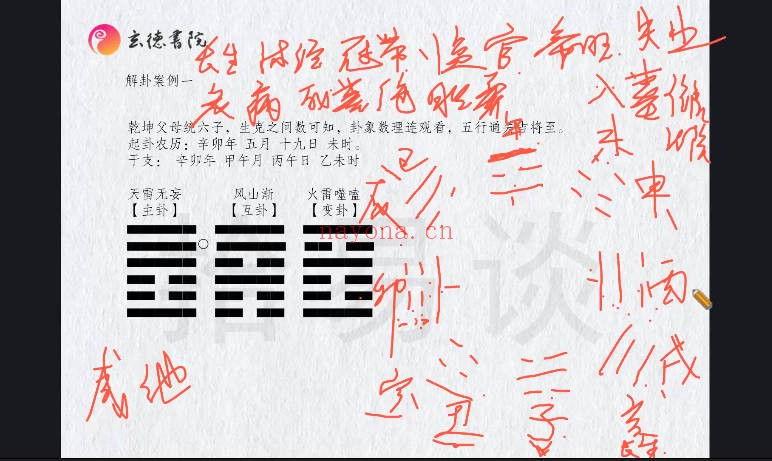 玄德書院
长生 沐浴 冠带 临官 帝旺
衰病死墓绝胎养
失业
入墓
解卦案例一
乾坤父母统六子，生克之间数可知，卦象数理连观看，五行通
将至。
起卦农历：辛卯年 五月 十九日 未时。
干支： 辛卯年 甲午月 丙午日 乙未时
天雷无妄 风山渐 火雷噬嗑
【主卦】 【互卦】 【变卦】
nayona.cn
易谈
未
申
巳
卯
酉
戌
丑
子
亥